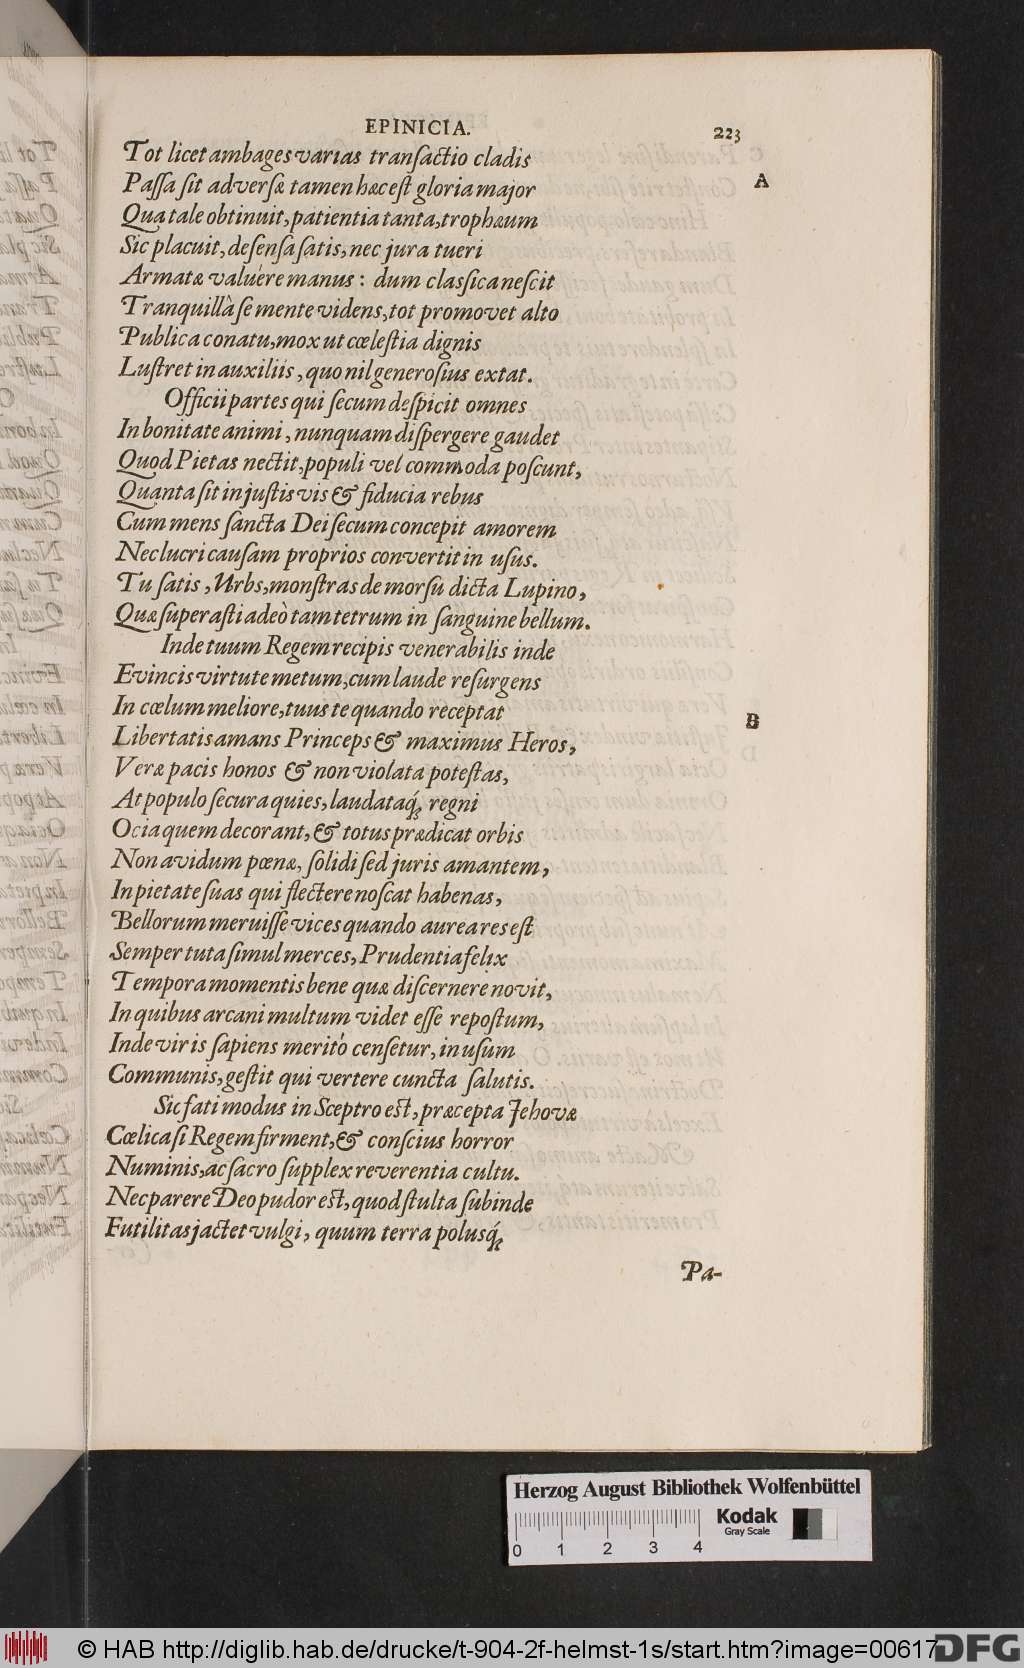 EPINICIA. 223
Tot licet ambages varias transactio cladis
A
Passa sit adversæ tamen hæc est gloria major
Qua tale obtinuit, patientia tanta, trophæum
Sic placuit, defensa satis, nec jura tueri
Armatæ valuére manus: dum classica nescit
Tranquillà se mente videns, tot promovet alto
Publica conatu, mox ut cœlestia dignis
Lustret in auxiliis, quo nil generosius extat.
Officii partes qui secum despicit omnes
In bonitate animi, nunquam dispergere gaudet
Quod Pietas nectit, populi vel commoda poscunt,
Quanta sit in justis vis & fiducia rebus
Cum mens sancta Dei secum concepit amorem
Nec lucri causam proprios convertit in usus.
Tu satis, Urbs, monstras de morsu dicta Lupino,
Quæ superasti adeò tam tetrum in sanguine bellum.
Inde tuum Regem recipis venerabilis inde
Evincis virtute metum, cum laude resurgens
In cœlum meliore, tuus te quando receptat
B
Libertatis amans Princeps & maximus Heros,
Veræ pacis honos & non violata potestas,
At populo secura quies, laudataq́ꝫ regni
Ocia quem decorant, & totus prædicat orbis
Non avidum pœnæ, solidi sed juris amantem,
In pietate suas qui flectere noscat habenas,
Bellorum meruisse vices quando aurea res est
Semper tuta simul merces, Prudentia felix
Tempora momentis bene quæ discernere novit,
In quibus arcani multum videt esse repostum,
Inde viris sapiens meritò censetur, in usum
Communis, gestit qui vertere cuncta salutis.
Sic fati modus in Sceptro est, præcepta Jehovæ
Cœlica si Regem firment, & conscius horror
Numinis, ac sacro supplex reverentia cultu.
Nec parere Deo pudor est, quod stulta subinde
Futilitas jactet vulgi, quum terra polusq́ꝫ
Pa-
Herzog August Bibliothek Wolfenbüttel
Kodak
Gray Scale
0 1 2 3 4
© HAB http://diglib.hab.de/drucke/t-904-2f-helmst-1s/start.htm?image=00617
DFG